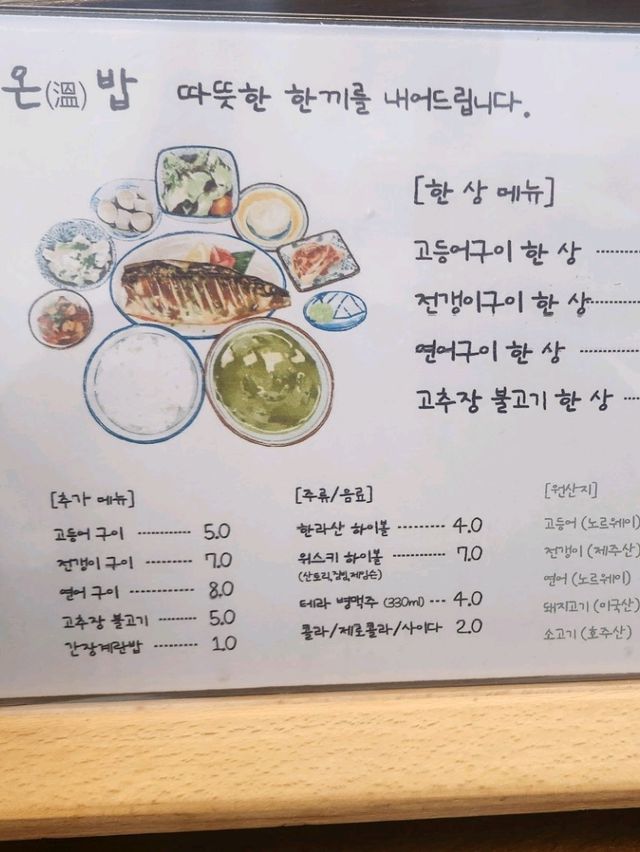 온(溫)밥 따뜻한 한끼를 내어드립니다.
[한 상 메뉴]
고등어구이 한 상 ·····
전갱이구이 한 상 ·····
연어구이 한 상 ·····
고추장 불고기 한 상 ·····
[추가 메뉴]
고등어 구이 ········· 5.0
전갱이 구이 ········· 7.0
연어 구이 ········· 8.0
고추장 불고기 ········· 5.0
간장계란밥 ········· 1.0
[주류/음료]
한라산 하이볼 ········· 4.0
위스키 하이볼 ········· 7.0
(산토리,짐빔,제임슨)
테라 병맥주 (330ml) ··· 4.0
콜라/제로콜라/사이다 2.0
[원산지]
고등어 (노르웨이)
전갱이 (제주산)
연어 (노르웨이)
돼지고기 (미국산)
소고기 (호주산)